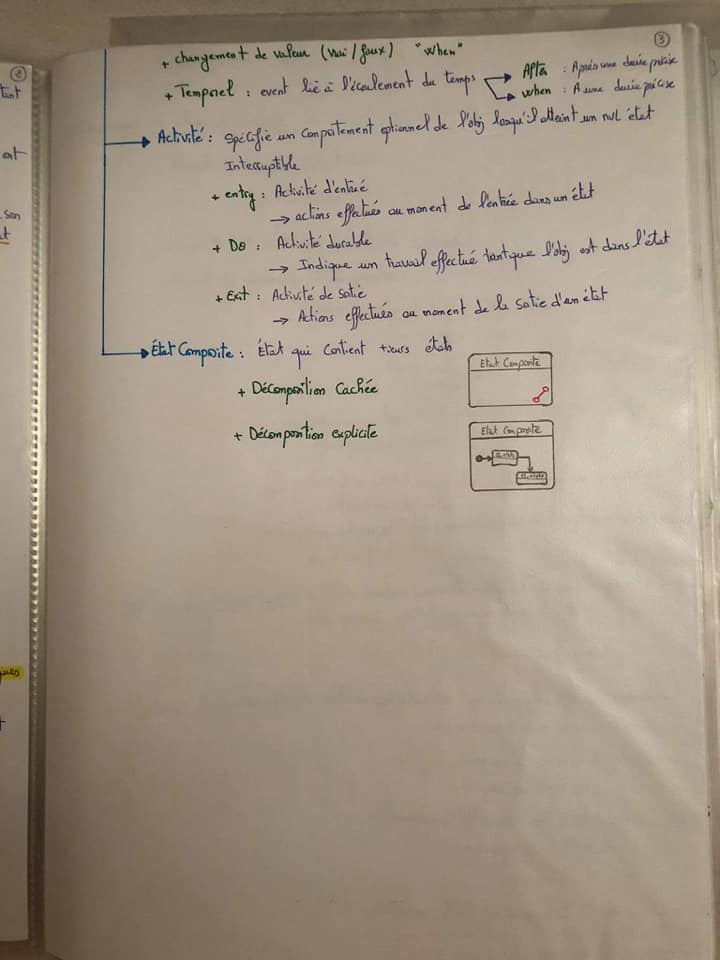 ③
+ changement de valeur (vrai / faux) "when"
+ Temporel : event lié à l'écoulement du temps
After : Après une durée précise
when : A une durée précise
Activité : Spécifie un comportement optionnel de l'obj lorsqu'il atteint un nvl état
Interruptible
+ entry : Activité d'entrée
→ actions effectués au moment de l'entrée dans un état
+ Do : Activité durable
→ Indique un travail effectué tant que l'obj est dans l'état
+ Exit : Activité de sortie
→ Actions effectués au moment de la sortie d'un état
État Composite : État qui contient +ieurs états
+ Décomposition Cachée
Etat Composite
+ Décomposition explicite
Etat Composite
②